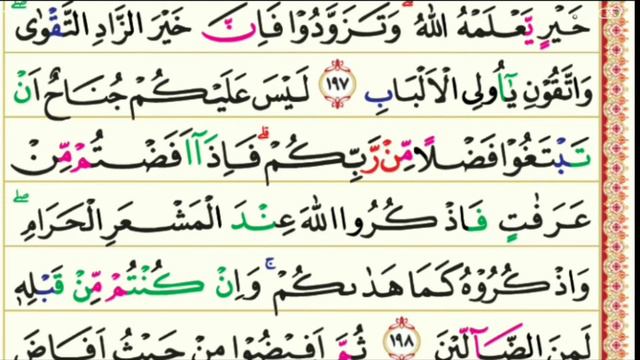 خَيْرٍ يَّعْلَمْهُ اللّٰهُ ؔ وَتَزَوَّدُوْا فَاِنَّ خَيْرَ الزَّادِ التَّقْوٰى ۖ
وَاتَّقُوْنِ يٰٓاُولِى الْاَلْبَابِ ١٩٧ لَيْسَ عَلَيْكُمْ جُنَاحٌ اَنْ
تَبْتَغُوْا فَضْلًا مِّنْ رَّبِّكُمْ ۗ فَاِذَآ اَفَضْتُمْ مِّنْ
عَرَفٰتٍ فَاذْكُرُوا اللّٰهَ عِنْدَ الْمَشْعَرِ الْحَرَامِ ۖ
وَاذْكُرُوْهُ كَمَا هَدٰىكُمْ ۚ وَاِنْ كُنْتُمْ مِّنْ قَبْلِهٖ
لَمِنَ الضَّآلِّيْنَ ١٩٨ ثُمَّ اَفِيْضُوْا مِنْ حَيْثُ اَفَاضَ